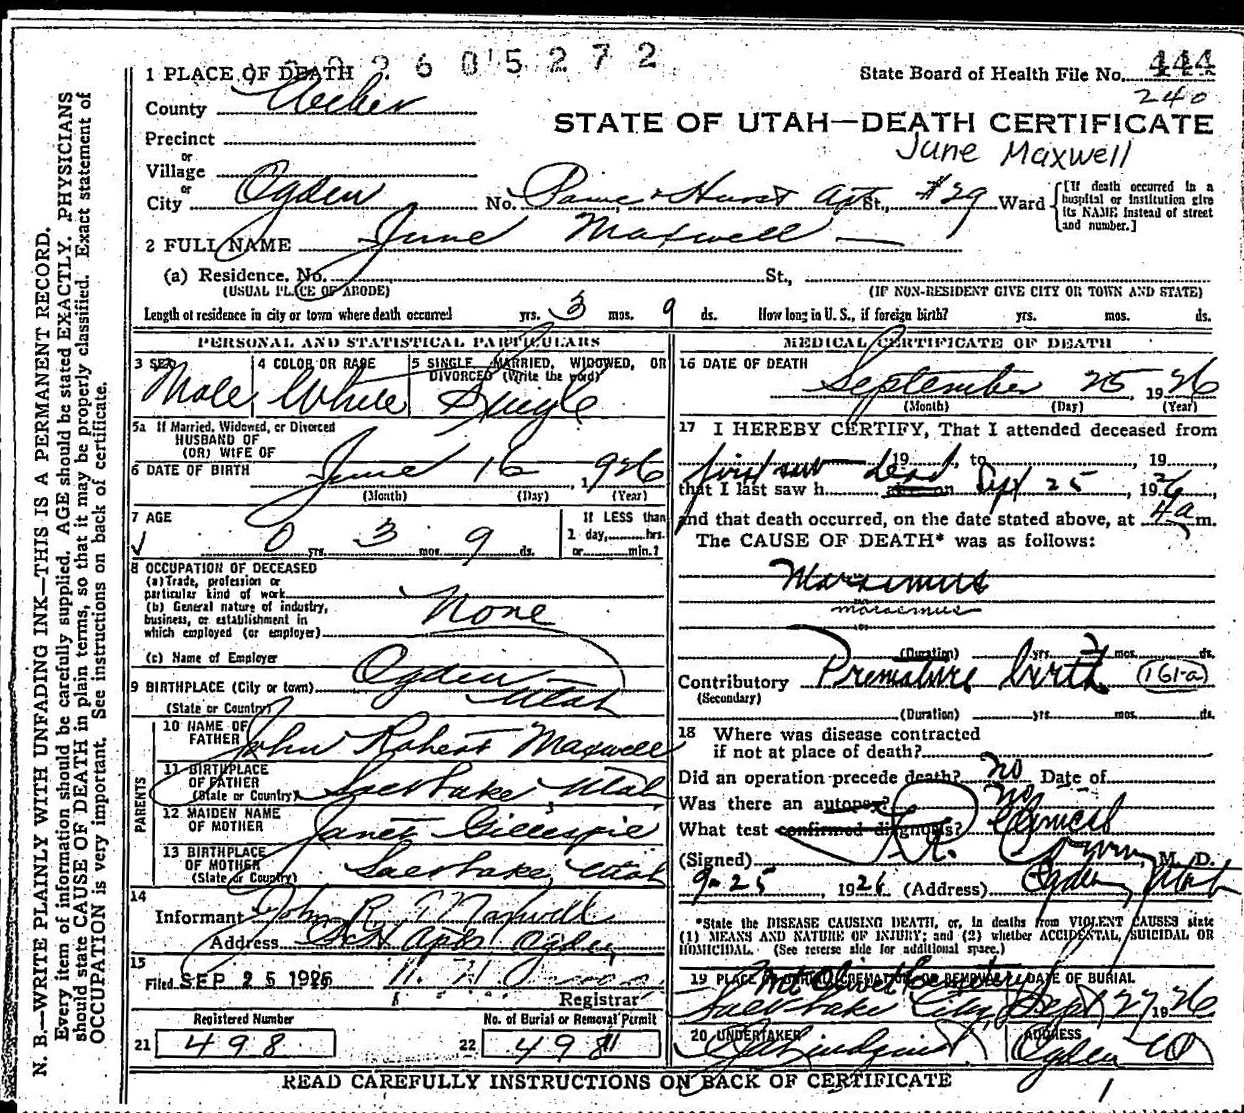 2605272
1 PLACE OF DEATH
State Board of Health File No. 444
240
County Weber
STATE OF UTAH—DEATH CERTIFICATE
June Maxwell
Precinct
or
Village
or
City Ogden No. Paine & Hurst Apt St., #29 Ward
[If death occurred in a hospital or institution give its NAME instead of street and number.]
2 FULL NAME June Maxwell
(a) Residence. No. St.,
(USUAL PLACE OF ABODE) (IF NON-RESIDENT GIVE CITY OR TOWN AND STATE)
Length of residence in city or town where death occurred yrs. 3 mos. 9 ds. How long in U. S., if foreign birth? yrs. mos. ds.
PERSONAL AND STATISTICAL PARTICULARS
3 SEX Male
4 COLOR OR RACE White
5 SINGLE, MARRIED, WIDOWED, OR DIVORCED (Write the word) Single
5a If Married, Widowed, or Divorced
HUSBAND OF
(OR) WIFE OF
6 DATE OF BIRTH June 16 1926
(Month) (Day) (Year)
7 AGE 0 yrs. 3 mos. 9 ds.
If LESS than
1 day, hrs.
or min.?
8 OCCUPATION OF DECEASED
(a) Trade, profession or
particular kind of work
(b) General nature of industry,
business, or establishment in
which employed (or employer)
None
(c) Name of Employer
9 BIRTHPLACE (City or town) Ogden
(State or Country) Utah
PARENTS
10 NAME OF FATHER John Robert Maxwell
11 BIRTHPLACE OF FATHER (State or Country) Salt Lake, Utah
12 MAIDEN NAME OF MOTHER Janet Gillespie
13 BIRTHPLACE OF MOTHER (State or Country) Salt Lake, Utah
14
Informant John R. Maxwell
Address Apts Ogden
15
Filed SEP 25 1926
Registrar
Registered Number
21 498
No. of Burial or Removal Permit
22 498
MEDICAL CERTIFICATE OF DEATH
16 DATE OF DEATH
September 25, 1926
(Month) (Day) (Year)
17 I HEREBY CERTIFY, That I attended deceased from
first saw dead 19, to , 19,
that I last saw h alive on Sept 25, 1926,
and that death occurred, on the date stated above, at 4a m.
The CAUSE OF DEATH* was as follows:
Marasmus
marasmus
(Duration) yrs. mos. ds.
Contributory Premature birth 161-a
(Secondary)
(Duration) yrs. mos. ds.
18 Where was disease contracted
if not at place of death?
Did an operation precede death? no Date of
Was there an autopsy? no
What test confirmed diagnosis? Clinical
(Signed) M. D.
9-25, 1926 (Address) Ogden, Utah
*State the DISEASE CAUSING DEATH, or, in deaths from VIOLENT CAUSES state
(1) MEANS AND NATURE OF INJURY; and (2) whether ACCIDENTAL, SUICIDAL OR
HOMICIDAL. (See reverse side for additional space.)
19 PLACE OF BURIAL, CREMATION OR REMOVAL DATE OF BURIAL
Mt Olivet Cemetery
Salt Lake City, Sept 27 1926
20 UNDERTAKER ADDRESS
Lindquist Ogden
READ CAREFULLY INSTRUCTIONS ON BACK OF CERTIFICATE
N. B.—WRITE PLAINLY WITH UNFADING INK—THIS IS A PERMANENT RECORD.
Every item of information should be carefully supplied. AGE should be stated EXACTLY. PHYSICIANS
should state CAUSE OF DEATH in plain terms, so that it may be properly classified. Exact statement of
OCCUPATION is very important. See instructions on back of certificate.